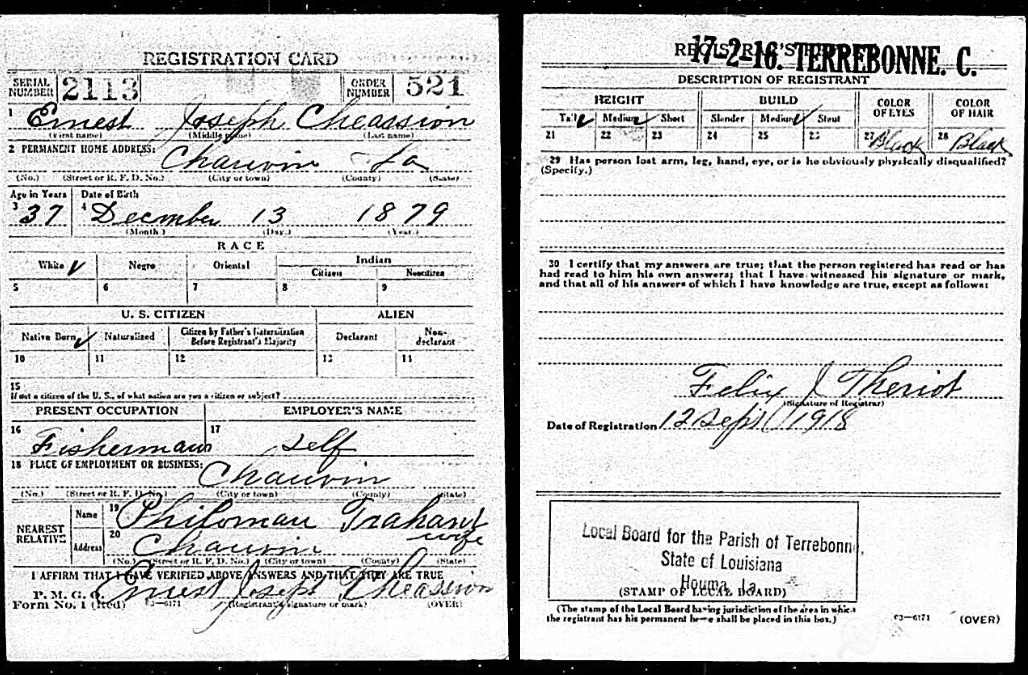 REGISTRATION CARD
SERIAL NUMBER 2113 ORDER NUMBER 521
1 Ernest Joseph Cheassion
(First name) (Middle name) (Last name)
2 PERMANENT HOME ADDRESS:
Chauvin La
(No.) (Street or R. F. D. No.) (City or town) (County) (State)
Age in Years Date of Birth
3 37 4 December 13 1879
(Month.) (Day.) (Year.)
RACE
White ✓ Negro Oriental Indian
Citizen Noncitizen
5 6 7 8 9
U. S. CITIZEN ALIEN
Native Born ✓ Naturalized Citizen by Father's Naturalization Before Registrant's Majority Declarant Non-declarant
10 11 12 13
15
If not a citizen of the U. S., of what nation are you a citizen or subject?
PRESENT OCCUPATION EMPLOYER'S NAME
16 Fisherman 17 self
18 PLACE OF EMPLOYMENT OR BUSINESS:
Chauvin
(No.) (Street or R. F. D. No.) (City or town) (County) (State)
NEAREST RELATIVE Name 19 Philoman Trahant
wife
Address 20 Chauvin
(No.) (Street or R. F. D. No.) (City or town) (County) (State)
I AFFIRM THAT I HAVE VERIFIED ABOVE ANSWERS AND THAT THEY ARE TRUE
P. M. G. O.
Form No. 1 (Red) 03—6171 (Registrant's signature or mark) (OVER)
Ernest Joseph Cheassion
17-2-16. TERREBONNE. C.
DESCRIPTION OF REGISTRANT
HEIGHT BUILD COLOR OF EYES COLOR OF HAIR
Tall ✓ Medium ✓ Short Slender Medium ✓ Stout
21 22 23 24 25 26 27 Black 28 Black
29 Has person lost arm, leg, hand, eye, or is he obviously physically disqualified?
(Specify.)
30 I certify that my answers are true; that the person registered has read or has
had read to him his own answers; that I have witnessed his signature or mark,
and that all of his answers of which I have knowledge are true, except as follows:
Felix J Theriot
(Signature of Registrar)
Date of Registration 12 Sept 1918
Local Board for the Parish of Terrebonne,
State of Louisiana
Houma, La.
(STAMP OF LOCAL BOARD)
(The stamp of the Local Board having jurisdiction of the area in which
the registrant has his permanent home shall be placed in this box.)
03—6171 (OVER)